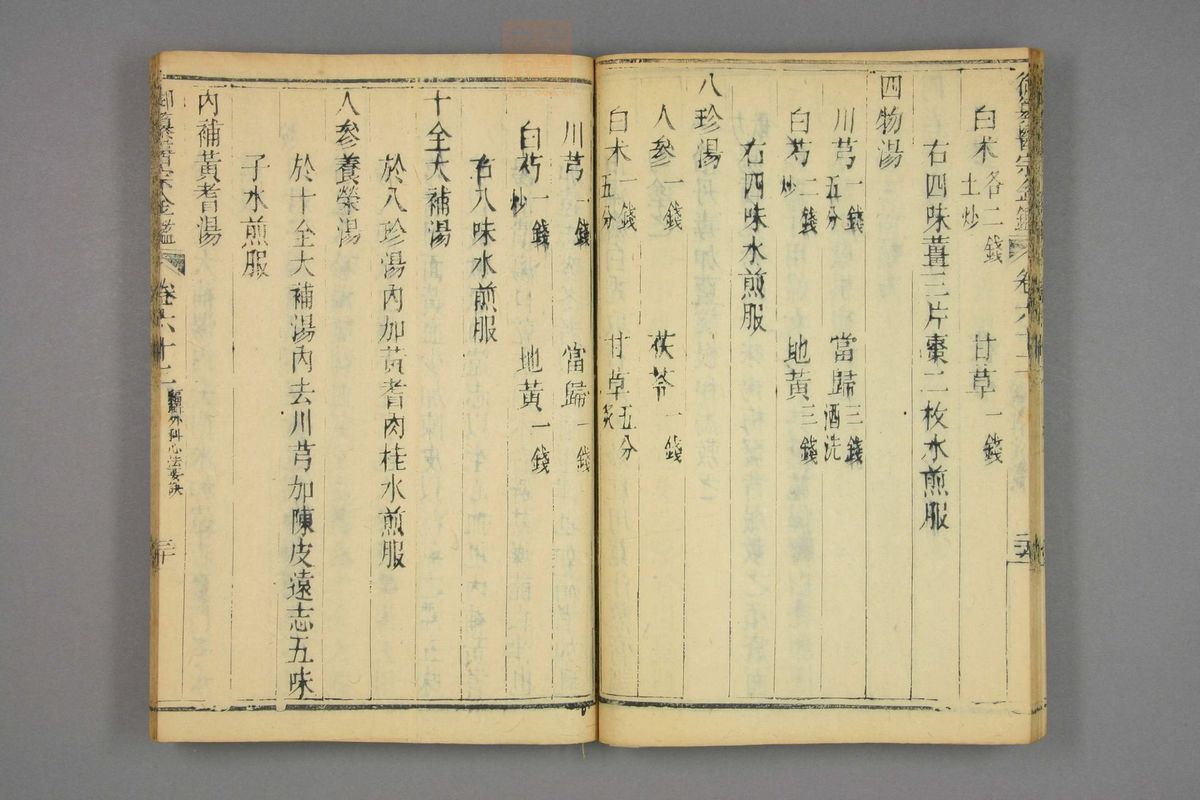 白术各二錢土炒 甘草一錢
右四味薑三片棗二枚水煎服
四物湯
川芎一錢五分 當歸三錢酒洗
白芍二錢炒 地黃三錢
右四味水煎服
八珍湯
人參一錢 茯苓一錢
白术一錢五分 甘草五分炙
川芎一錢 當歸一錢
白芍一錢炒 地黃一錢
右八味水煎服
十全大補湯
於八珍湯內加黃耆肉桂水煎服
人參養榮湯
於十全大補湯內去川芎加陳皮遠志五味
子水煎服
內補黃耆湯
御纂醫宗金鑑 卷六十二 編輯外科心法要訣